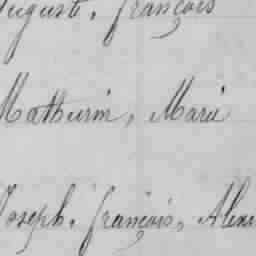 Auguste, françois
Mathurin, Marie
Joseph, françois, Alexi